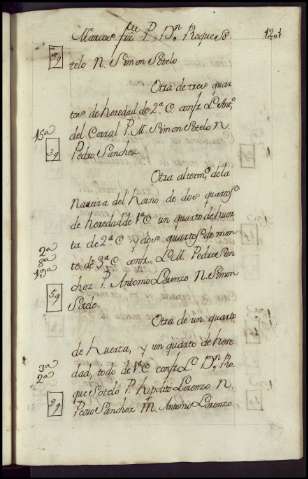 Marcos fte P. Dn. Roque So
telo N. Simon Sotelo
Otra de tres quar
tos de heredad de 2ª C confe L.
del Carral P. M. Simon Sotelo N.
Pedro Sanchez
Otra al term.º de la
navara del de dos quartos
de heredad de 1ª C un quarto de huer
ta de 2ª C y dois quartos de mon
te de 3ª C confe L. M. Pedro San
chez P. Antonio Lorenzo N. Simon
Sotelo
Otra de un quarto
de Huerta, y un quarto de here
dad, todo de 1ª C confe L. Dn. Ro
que Sotelo P. Hipolito Lorenzo N.
Pedro Sanchez M. Antonio Lorenzo
15ª
2ª
8ª
15ª
3ª
2ª